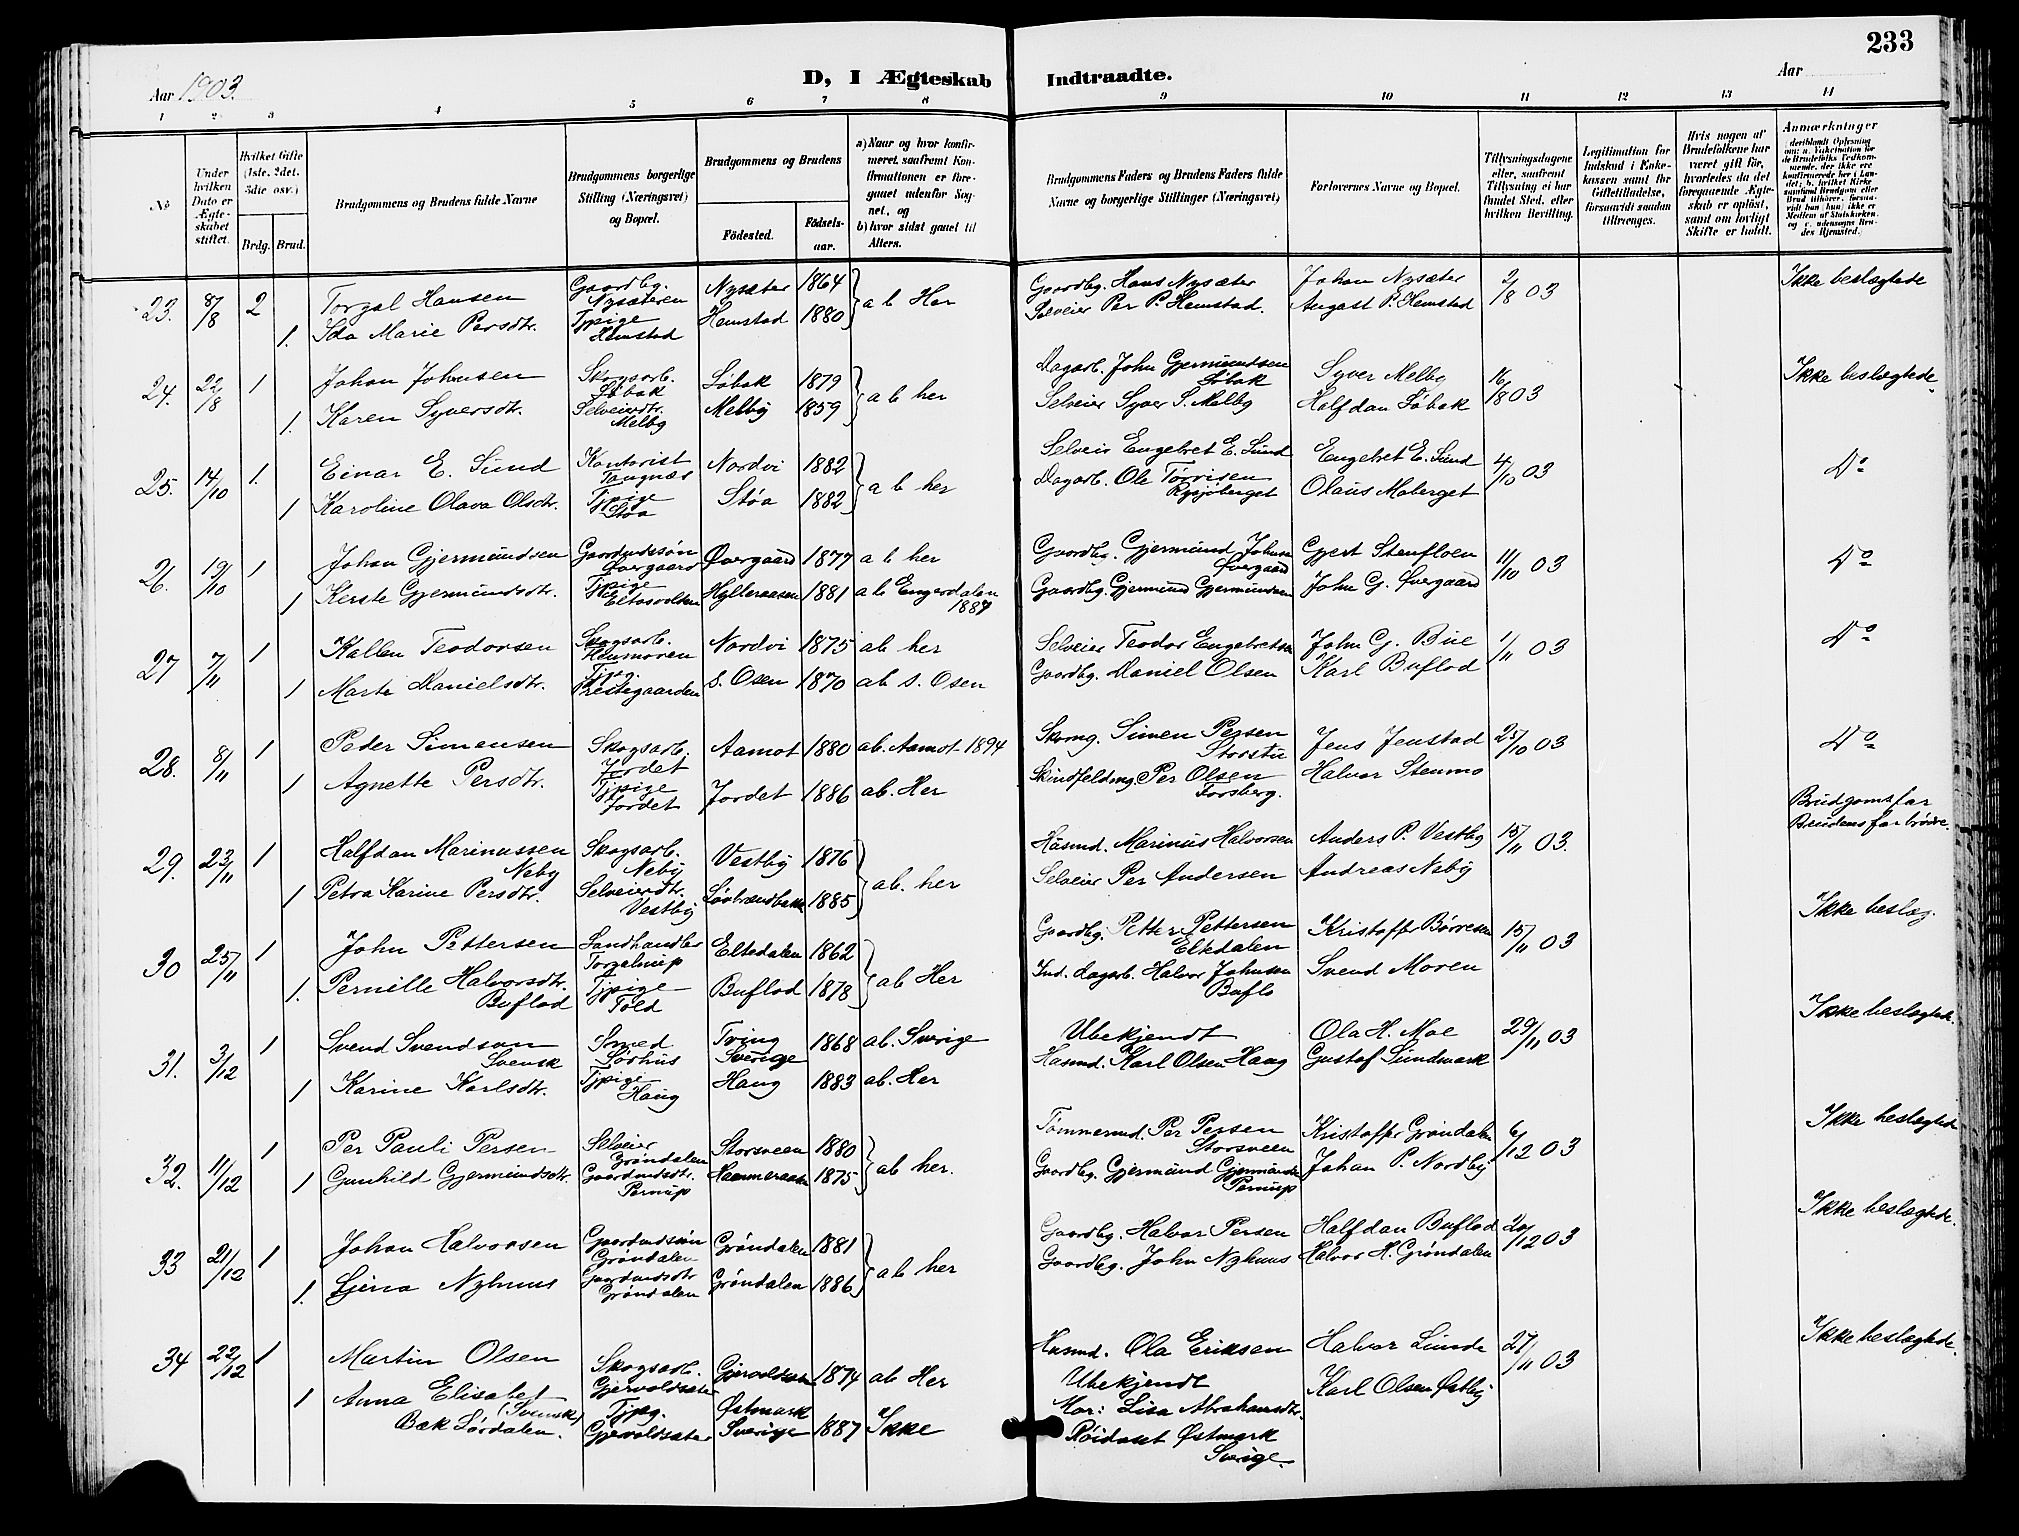 233
Aar 1903.
D, I Ægteskab Indtraadte.
Aar
1 2 3 4 5 6 7 8 9 10 11 12 13 14
No
Under hvilken Dato er Ægteskabet stiftet.
Hvilket Gifte (1ste, 2det, 3die osv.)
Brdg. Brud.
Brudgommens og Brudens fulde Navne
Brudgommens borgerlige Stilling (Næringsvei) og Bopæl.
Brudgommens og Brudens
Fødested. Fødselsaar.
a) Naar og hvor konfirmeret, saafremt Konfirmationen er foregaaet udenfor Sognet, og
b) hvor sidst gaaet til Alters.
Brudgommens Faders og Brudens Faders fulde Navne og borgerlige Stillinger (Næringsvei)
Forlovernes Navne og Bopæl.
Tillysningsdagene eller, saafremt Tillysning ei har fundet Sted, efter hvilken Bevilling.
Legitimation for Indskud i Enkekassen samt for Giftetilladelse, forsaavidt saadan tiltrænges.
Hvis nogen af Brudefolkene har været gift før, hvorledes da det foregaaende Ægteskab er opløst, samt om lovligt Skifte er holdt.
Anmærkninger
23. 8/8 2 Torgal Hansen Gaardbg. Nysæteren Nysæter 1864 ab Her Gaardbg. Hans Nysæter Johan Nysæter 2/8 03 Ikke beslægtede
1. Ida Marie Persdtr. Tjpige Hemstad Hemstad 1880 Selveier Per P. Hemstad. August P. Hemstad
24. 22/8 1 Johan Johnsen Skogsarb. Løbak Løbak 1879 ab her Dagarb. John Gjermundsen Løbak Syver Melby 16/8 03 Ikke beslægtede
1. Karen Syversdtr. Selveierdtr. Melby Melby 1859 Selveier Syver S. Melby Halfdan Løbak
25. 14/10 1. Einar E. Sund Kontorist Nordvi 1882 ab her Selveier Engebret E. Sund Engebret E. Sund 4/10 03 Do
1 Karoline Olava Olsdtr. Tjpige Støa Støa 1882 Dagarb. Ole Olaus Moberget
26. 19/10 1 Johan Gjermundsen Gaardmdssøn Øvergaard Øvergaard 1877 ab her Gaardbg. Gjermund Johnsen Øvergaard Gjert Stenfloen 11/10 03 Do
1 Kirste Gjermundsdtr. Tjpige 1881 ab Engerdalen Gaardbg. Gjermund Gjermundsen John G. Øvergaard
27 7/11 1 Kallen Teodorsen Skogsarb. Nordvi 1875 ab her Selveier Teodor Engebretsen John G. Bue 1/11 03 Do
1 Marte Danielsdtr. Tjpg. S. Osen 1870 ab S. Osen Gaardbg. Daniel Olsen Karl Buflod
28. 8/11 1 Peder Simensen Skogsarb. Jordet Aamot 1880 ab. Aamot 1894 Skomg. Simen Persen Storstu Jens Jenstad 25/10 03 Do
1 Agnette Persdtr. Tjpige Jordet Jordet 1886 ab. Her Skindfeldmg. Per Olsen Forsberg. Halvor Stenmo
29. 23/11 1 Halfdan Marinussen Neby Skogsarb. Neby Vestby 1876 ab. her Husmd. Marinus Halvorsen Anders P. Vestby 15/11 03. Brudgoms far Brudens farbrodre.
1 Petra Karine Persdtr. Selveierdtr. Vestby 1885 Selveier Per Andersen Andreas Neby
30 25/11 1 John Pettersen Landhandler Eltedalen 1862 ab Her Gaardbg. Petter Pettersen Eltedalen Kristoffer Børresen 15/11 03 Ikke beslæg.
1. Pernille Halvorsdtr. Buflod Tjpige Buflod 1878 Ind. dagarb. Halvor Johnsen Buflo Svend Moren
31. 3/12 1 Svend Svendson Svensk Smed Sørhus Tving Sverige 1868 ab. Sverige Ubekjendt Ola H. Moe 29/11 03 Ikke beslægtede.
1 Karine Karlsdtr. Tjpige Haug Haug 1883 ab. Her Husmd. Karl Olsen Haug Gustaf Sundmark
32. 11/12 1 Per Pauli Persen Selveier Grøndalen Storsveen 1880 ab her. Tømmermd. Per Persen Storsveen Kristoffer Grøndalen 6/12 03 Ikke beslægtede
1 Gunhild Gjermundsdtr. Gaardmdsdtr. Pernup 1875 Gaardbg. Gjermund Gjermundsen Pernup Johan P. Nordby
33 21/12 1 Johan Halvorsen Gaardmdssøn Grøndalen Grøndalen 1881 ab her Gaardbg. Halvor Persen Halfdan Buflod 20/12 03 Ikke beslægtede.
1. Sjena Nyhuus Gaardmdsdtr Grøndalen Grøndalen 1886 Gaardbg. John Nyhuus Halvor H. Grøndalen
34 22/12 1 Martin Olsen Skogsarb. 1874 ab Her Husmd. Ola Eriksen Halvor Lunde 27/11 03 Ikke beslægtede.
1 Anna Elisabet (Svensk) Bak Lørdalen. Tjpg. Østmark Sverige 1887 Ikke Ubekjendt Karl Olsen Østby
Mor: Lisa Abrahamsdtr.
Røidaset Østmark
Sverige.